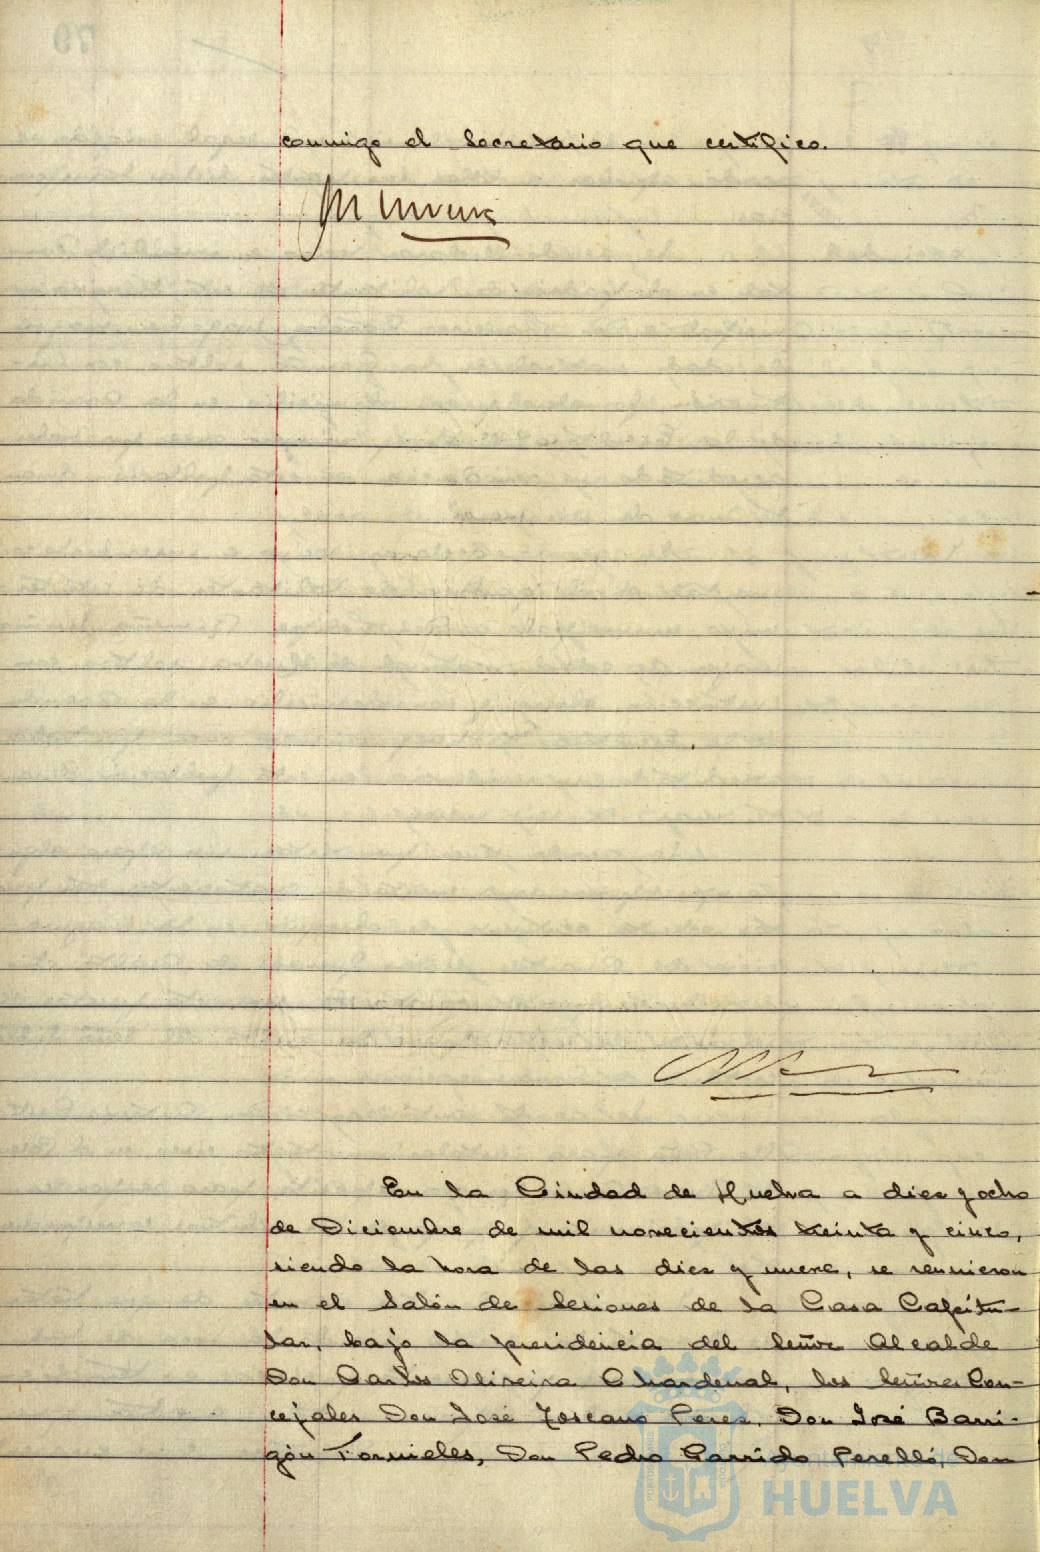 conmigo el Secretario que certifico.
En la Ciudad de Huelva a diez y ocho
de Diciembre de mil novecientos treinta y cinco,
siendo la hora de las diez y nueve, se reunieron
en el Salón de Sesiones de la Casa Capitu-
lar, bajo la presidencia del Señor Alcalde
Don Carlos Oliveira Chardenal, los Señores Con-
cejales Don José Toscano Perez, Don José Barri-
gón Fornieles, Don Pedro Garrido Perelló, Don
HUELVA